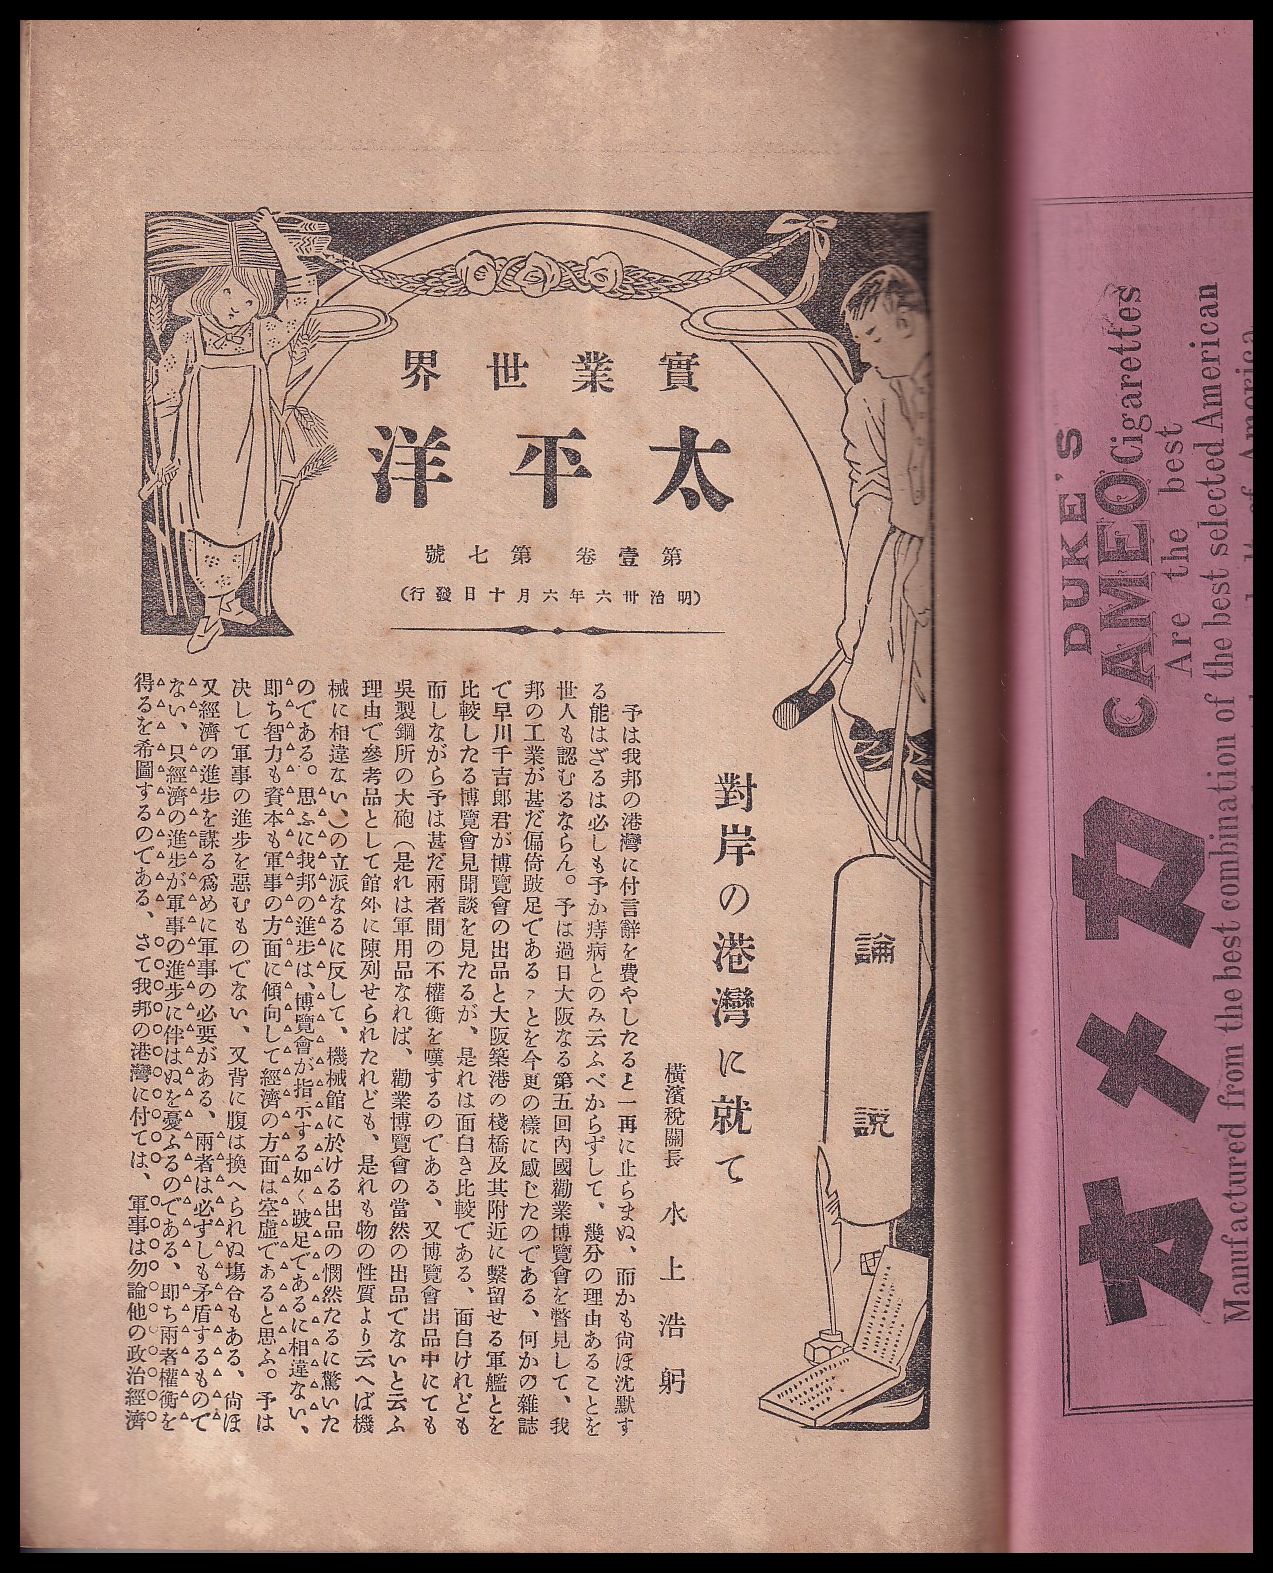 實業世界
太平洋
第壹卷第七號
(明治卅六年六月十日發行)
論說
對岸の港灣に就て
橫濱稅關長 水上浩躬
予は我邦の港灣に付言辭を費やしたると一再に止らまぬ、而かも尙ほ沈默す
る能はざるは必しも予か痔病とのみ云ふべからずして、幾分の理由あることを
世人も認むるならん。予は過日大阪なる第五回內國勸業博覽會を瞥見して、我
邦の工業が甚だ偏倚跛足である とを今更の樣に感じたのである、何かの雜誌
で早川千吉郞君が博覽會の出品と大阪築港の棧橋及其附近に繫留せる軍艦とを
比較したる博覽會見聞談を見たるが、是れは面白き比較である、面白けれども
而しながら予は甚だ兩者間の不權衡を嘆するのである、又博覽會出品中にても
吳製鋼所の大砲(是れは軍用品なれば、勸業博覽會の當然の出品でないと云ふ
理由で參考品として館外に陳列せられたれども、是れも物の性質より云へば機
械に相違ない、)の立派なるに反して、機械館に於ける出品の憫然たるに驚いた
のである。思ふに我邦の進步は、博覽會が指示する如く跛足であるに相違ない、
卽ち智力も資本も軍事の方面に傾向して經濟の方面は空虛であると思ふ。予は
決して軍事の進步を惡むものでない、又背に腹は換へられぬ塲合もある、尙ほ
又經濟の進步を謀る爲めに軍事の必要がある、兩者は必ずしも矛盾するもので
ない、只經濟の進步が軍事の進步に伴はぬを憂ふるのである、卽ち兩者權衡を
得るを希圖するのである、さて我邦の港灣に付ては、軍事は勿論他の政治經濟
DUKE'S
CAMEO Cigarettes
Are the best
Manufactured from the best combination of the best selected American